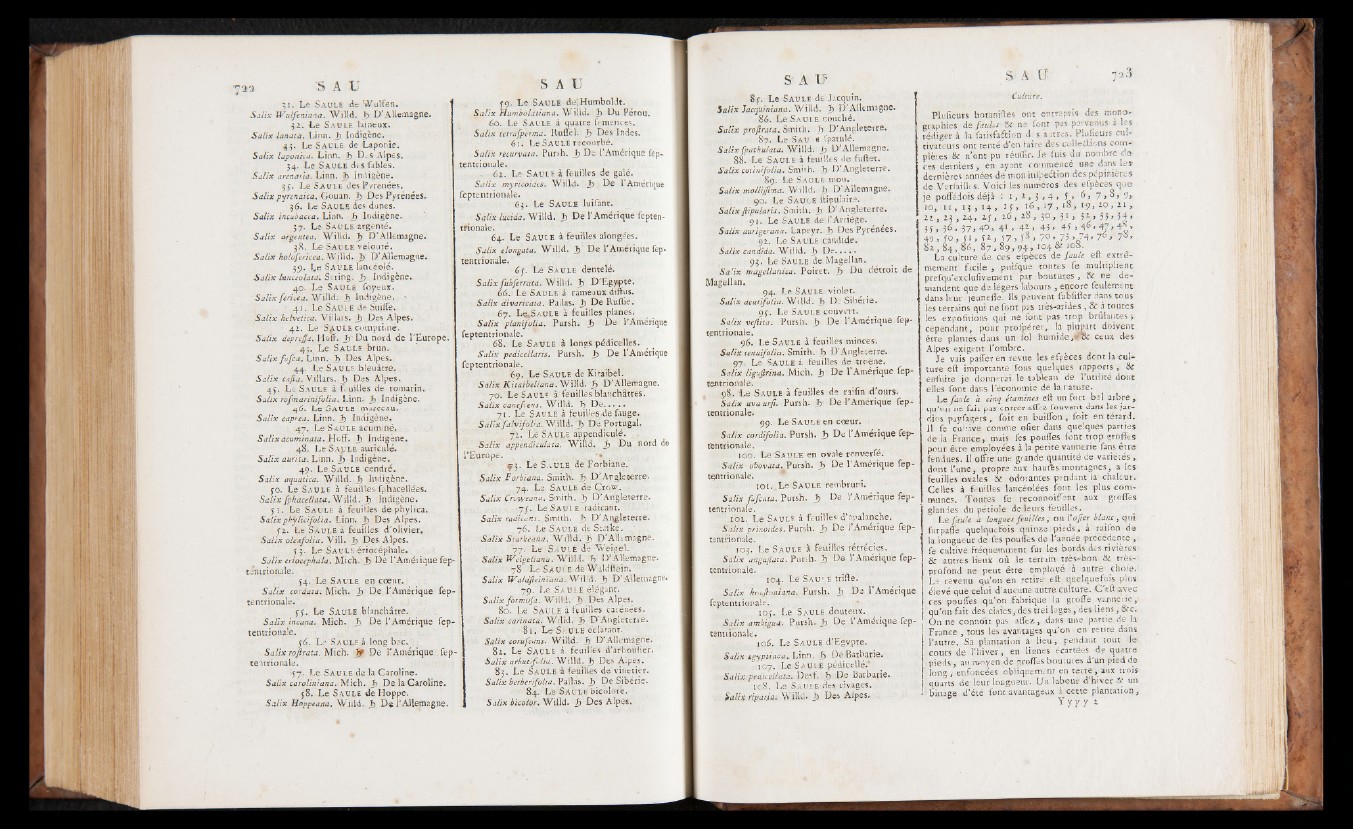 722 S A U
31. Le SAULE de Wulfen.
Salix Wulfeniana. Willd. ♄ D'Allemagne.
32. Le SAULE laineux.
Salix lanata. Linn. ♄ Indigène.
33. Le SAULE de Laponie.
Salix laponica. Linn. ♄ Des Alpes.
34. Le SAULE des sables.
Salix arenaria. Linn. ♄ Indigène.
35. Le SAULE des Pyrenées.
Salix pyrenaica. Gouan. ♄ Des Pyrenées.
36. Le SAULE des dunes.
Salix incubacea. Linn. ♄ Indigène.
37. Le SAULE argenté.
Salix argentea. Willd. ♄ D'Allemagne.
38. Le SAULE velouté.
Salix holosericea. Willd. ♄ D'Allemagne.
39. Le SAULE lancéolé.
Salix lanceolata. String. ♄ Indigène.
40. Le SAULE soyeux.
Salix sericea. Willd. ♄ Indigène.
41. Le SAULE de Suisse.
Salix helvetica. Villars. ♄ Des Alpes.
42. Le SAULE comprimé.
Salix depressa. Hoff. ♄ Du nord de l'Europe.
43. Le SAULE brun.
Salix fusca. Linn. ♄ Des Alpes.
44. Le SAULE bleuâtre.
Salix cæsia. Villars. ♄ Des Alpes.
45. Le SAULE à feuilles de romarin.
Salix rosmarinifolia. Linn. ♄ Indigène.
46. Le SAULE marceau.
Salix caprea. Linn. ♄ Indigène.
47. Le SAULE acuminé.
Salix acuminata. Hoff. ♄ Indigène.
48. Le SAULE auriculé.
Salix aurita. Linn. ♄ Indigène.
49. Le SAULE cendré.
Salix aquatica. Willd. ♄ Indigène.
50. Le SAULE à feuilles sphacellées.
Salix sphacellata. Willd. ♄ Indigène.
51. Le SAULE à feuilles de phylica.
Salix phylicifolia. Linn. ♄ Des Alpes.
52. Le SAULE à feuilles d'olivier.
Salix oleæfolia. Vill. ♄ Des Alpes.
53. Le SAULE ériocéphale.
Salix eriocephala. Mich. ♄ De l'Amérique sep-
tentrionale.
54. Le SAULE en cœur.
Salix cordata. Mich. ♄ De l'Amérique sep-
tentrionale.
55. Le SAULE blanchâtre.
Salix incana. Mich. ♄ De l'Amérique sep-
tentrionale.
56. Le SAULE à long bec.
Salix rostrata. Mich. ♄ De l'Amérique sep-
tentrionale.
57. Le SAULE de la Caroline.
Salix caroliniana. Mich. ♄ De la Caroline.
58. Le SAULE de Hoppe.
Salix Hoppeana. Willd. ♄ De l'Allemagne.
S A U
59. Le SAULE de Humboldt.
Salix Humboldtiana. Willd. ♄ Du Pérou.
60. Le SAULE à quatre semences.
Salix tetrasperma. Russel. ♄ Des Indes.
61. Le SAULE recourbé.
Salix recurvata. Pursh. ♄ De l'Amérique sep-
tentrionale.
62. Le SAULE à feuilles de galé.
Salix myricoides. Willd. ♄ De l'Amérique
septentrionale.
63. Le SAULE luisant.
Salix lucida. Willd. ♄ De l'Amérique septen-
trionale.
64. Le SAULE à feuilles alongées.
Salix elongata. Willd. ♄ De l'Amérique sep-
tentrionale.
65. Le SAULE dentelé.
Salix subserrata. Willd. ♄ D'Egypte.
66. Le SAULE à rameaux diffus.
Salix divaricata. Pallas. ♄ De Russie.
67. Le SAULE à feuilles planes.
Salix planifolia. Pursh. ♄ De l'Amérique
septentrionale.
68. Le SAULE à longs pédicelles.
Salix pedicellaris. Pursh. ♄ De l'Amérique
septentrionale.
69. Le SAULE de Kitaibel.
Salix Kitaibeliana. Willd. ♄ D'Allemagne.
70. Le SAULE à feuilles blanchâtres.
Salix canescens. Willd. ♄ De.....
71. Le SAULE à feuilles de sauge.
Salix salvifolia. Willd. ♄ De Portugal.
72. Le SAULE appendiculé.
Salix appendiculata. Willd. ♄ Du nord de
l'Europe.
73. Le SAULE de Forbiane.
Salix Forbiana. Smith. ♄ D'Angleterre.
74. Le SAULE de Crow.
Salix Croweana. Smith. ♄ D'Angleterre.
75. Le SAULE radicant.
Salix radicans. Smith. ♄ D'Angleterre.
76. Le SAULE de Starke.
Salix Starkeana. Willd. ♄ D'Allemagne.
77. Le SAULE de Weigel.
Salix Weigeliana. Willd. ♄ D'Allemagne.
78 Le SAULE de Waldstein.
Salix Waldsteiniana. Willd. ♄ D'Allemagne.
79. Le SAULE élégant.
Salix formosa. Willd. ♄ Des Alpes.
80. Le SAULE à feuilles carénées.
Salix carinata. Willd. ♄ D'Angleterre.
81. Le SAULE éclatant.
Salix coruscans. Willd. ♄ D'Allemagne.
82. Le SAULE à feuilles d'arbousier.
Salix arbutifolia. Willd. ♄ Des Alpes.
83. Le SAULE à feuilles de vinetier.
Salix berberifolia. Pallas. ♄ De Sibérie.
84. Le SAULE bicolore.
Salix bicolor. Willd. ♄ Des Alpes.
S A U
85. Le SAULE de Jacquin.
Salix Jacquiniana. Willd. ♄ D'Allemagne.
86. Le SAULE couché.
Salix prostrata. Smith. ♄ D'Angleterre.
87. Le SAULE spatulé.
Salix spathulata. Willd. ♄ D'Allemagne.
88. Le SAULE à feuilles de fustet.
Salix cotinifolia. Smith. ♄ D'Angleterre.
89. Le SAULE mou.
Salix mollissima. Willd. ♄ D'Allemagne.
90. Le SAULE stipulaire.
Salix stipularis. Smith. ♄ D'Angleterre.
91. Le SAULE de l'Arriége.
Salix aurigerana. Lapeyr. ♄ Des Pyrenées.
92. Le SAULE candide.
Salix candida. Willd. ♄ De.....
93. Le SAULE de Magellan.
Salix magellanica. Poiret. ♄ Du détroit de
Magellan.
94. Le SAULE violet.
Salix acutifolia. Willd. ♄ De Sibérie.
95. Le SAULE couvert.
Salix vestita. Pursh. ♄ De l'Amérique sep-
tentrionale.
96. Le SAULE à feuilles minces.
Salix tenuifolia. Smith. ♄ D'Angleterre.
97. Le SAULE à feuilles de troëne.
Salix ligustrina. Mich. ♄ De l'Amérique sep-
tentrionale.
98. Le SAULE à feuilles de raisin d'ours.
Salix uva ursi. Pursh. ♄ De l'Amérique sep-
tentrionale.
99. Le SAULE en cœur.
Salix cordifolia. Pursh. ♄ De l'Amérique sep-
tentrionale.
100. Le SAULE en ovale renversé.
Salix obovata. Pursh. ♄ De l'Amérique sep-
tentrionale.
101. Le SAULE rembruni.
Salix fuscata. Pursh. ♄ De l'Amérique sep-
tentrionale.
102. Le SAULE à feuilles d'avalanche.
Salix prinoides. Pursh. ♄ De l'Amérique sep-
tentrionale.
103. Le SAULE à feuilles rétrécies.
Salix angustata. Pursh. ♄ De l'Amérique sep-
tentrionale.
104. Le SAULE triste.
Salix houstoniana. Pursh. ♄ De l'Amérique
septentrionale.
105. Le SAULE douteux.
Salix ambigua. Pursh. ♄ De l'Amérique sep-
tentrionale.
106. Le SAULE d'Egypte.
Salix ægyptiaca. Linn. ♄ De Barbarie.
107. Le SAULE pédicellé.
Salix pedicellata. Desf. ♄ De Barbarie.
108. Le SAULE des rivages.
Salix riparia. Willd. ♄ Des Alpes.
S A U 723
Culture.
Plusieurs botanistes ont entrepris des mono-
graphies de saules & ne sont pas parvenus à les
rédiger à la satisfaction des autres. Plusieurs cul-
tivateurs ont tenté d'en faire des collections com-
plètes & n'ont pu réussir. Je suis du nombre de
ces derniers, en ayant commencé une dans les
dernières années de mon inspection des pépinières
de Versailles. Voici les numéros des espèces que
je possédois déjà : 1, 2, 3, 4, 5, 6, 7, 8, 9,
10, 11, 13, 14, 15, 16, 17, 18, 19, 20, 21,
22, 23, 24, 25, 26, 28, 30, 31, 32, 33, 34,
35, 36, 37, 40, 41, 42, 43, 45, 46, 47, 48,
49, 50, 51, 52, 57, 58, 70, 73, 74, 76, 78,
82, 84, 86, 87, 89, 94, 104 & 108.
La culture de ces espèces de saule est extrê-
mement facile, puisque toutes se multiplient
presqu'exclusivement par boutures, & ne de-
mandent que de légers labours, encore seulement
dans leur jeunesse. Ils peuvent subsister dans tous
les terrains qui ne sont pas très-arides, & à toutes
les expositions qui ne sont pas trop brûlantes;
cependant, pour prospérer, la plupart doivent
être plantés dans un sol humide, & ceux des
Alpes exigent l'ombre.
Je vais passer en revue les espèces dont la cul-
ture est importante sous quelques rapports, &
ensuite je donnerai le tableau de l'utilité dont
elles sont dans l'économie de la nature.
Le saule à cinq étamines est un fort bel arbre,
qu'on ne fait pas entrer assez souvent dans les jar-
dins paysagers, soit en buisson, soit en tétard.
Il se cultive comme osier dans quelques parties
de la France, mais ses pousses sont trop grosses
pour être employées à la petite vannerie sans être
fendues. Il offre une grande quantité de variétés,
dont l'une, propre aux hautes montagnes, a les
feuilles ovales & odorantes pendant la chaleur.
Celles à feuilles lancéolées sont les plus com-
munes. Toutes se reconnoissent aux grosses
glandes du pétiole de leurs feuilles.
Le saule à longues feuilles, ou l'osier blanc, qui
surpasse quelquefois quinze pieds, à raison de
la longueur de ses pousses de l'année précédente,
se cultive fréquemment sur les bords des rivières
& autres lieux où le terrain très-bon & très-
profond ne peut être employé à autre chose.
Le revenu qu'on en retire est quelquefois plus
élevé que celui d'aucune autre culture. C'est avec
ces pousses qu'on fabrique la grosse vannerie,
qu'on fait des claies, des treillages, des liens, &c.
On ne connoît pas assez, dans une partie de la
France, tous les avantages qu'on en retire dans
l'autre. Sa plantation a lieu, pendant tout le
cours de l'hiver, en lignes écartées de quatre
pieds, au moyen de grosses boutures d'un pied de
long, enfoncées obliquement en terre, aux trois
quarts de leur longueur. Un labour d'hiver & un
binage d'été sont avantageux à cette plantation,
Y y y y 2